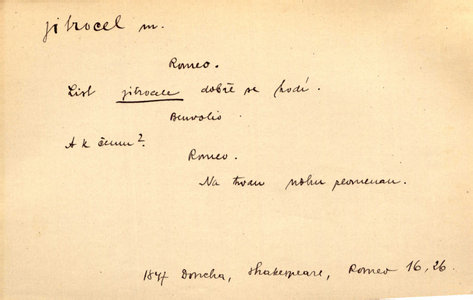 jitrocel m.
Romeo.
List jitrocele dobře se hodí.
Benvolio.
A k čemu?
Romeo.
Na tvou nohu plomenau.
1847 Doucha, Shakespeare, Romeo 16, 26.